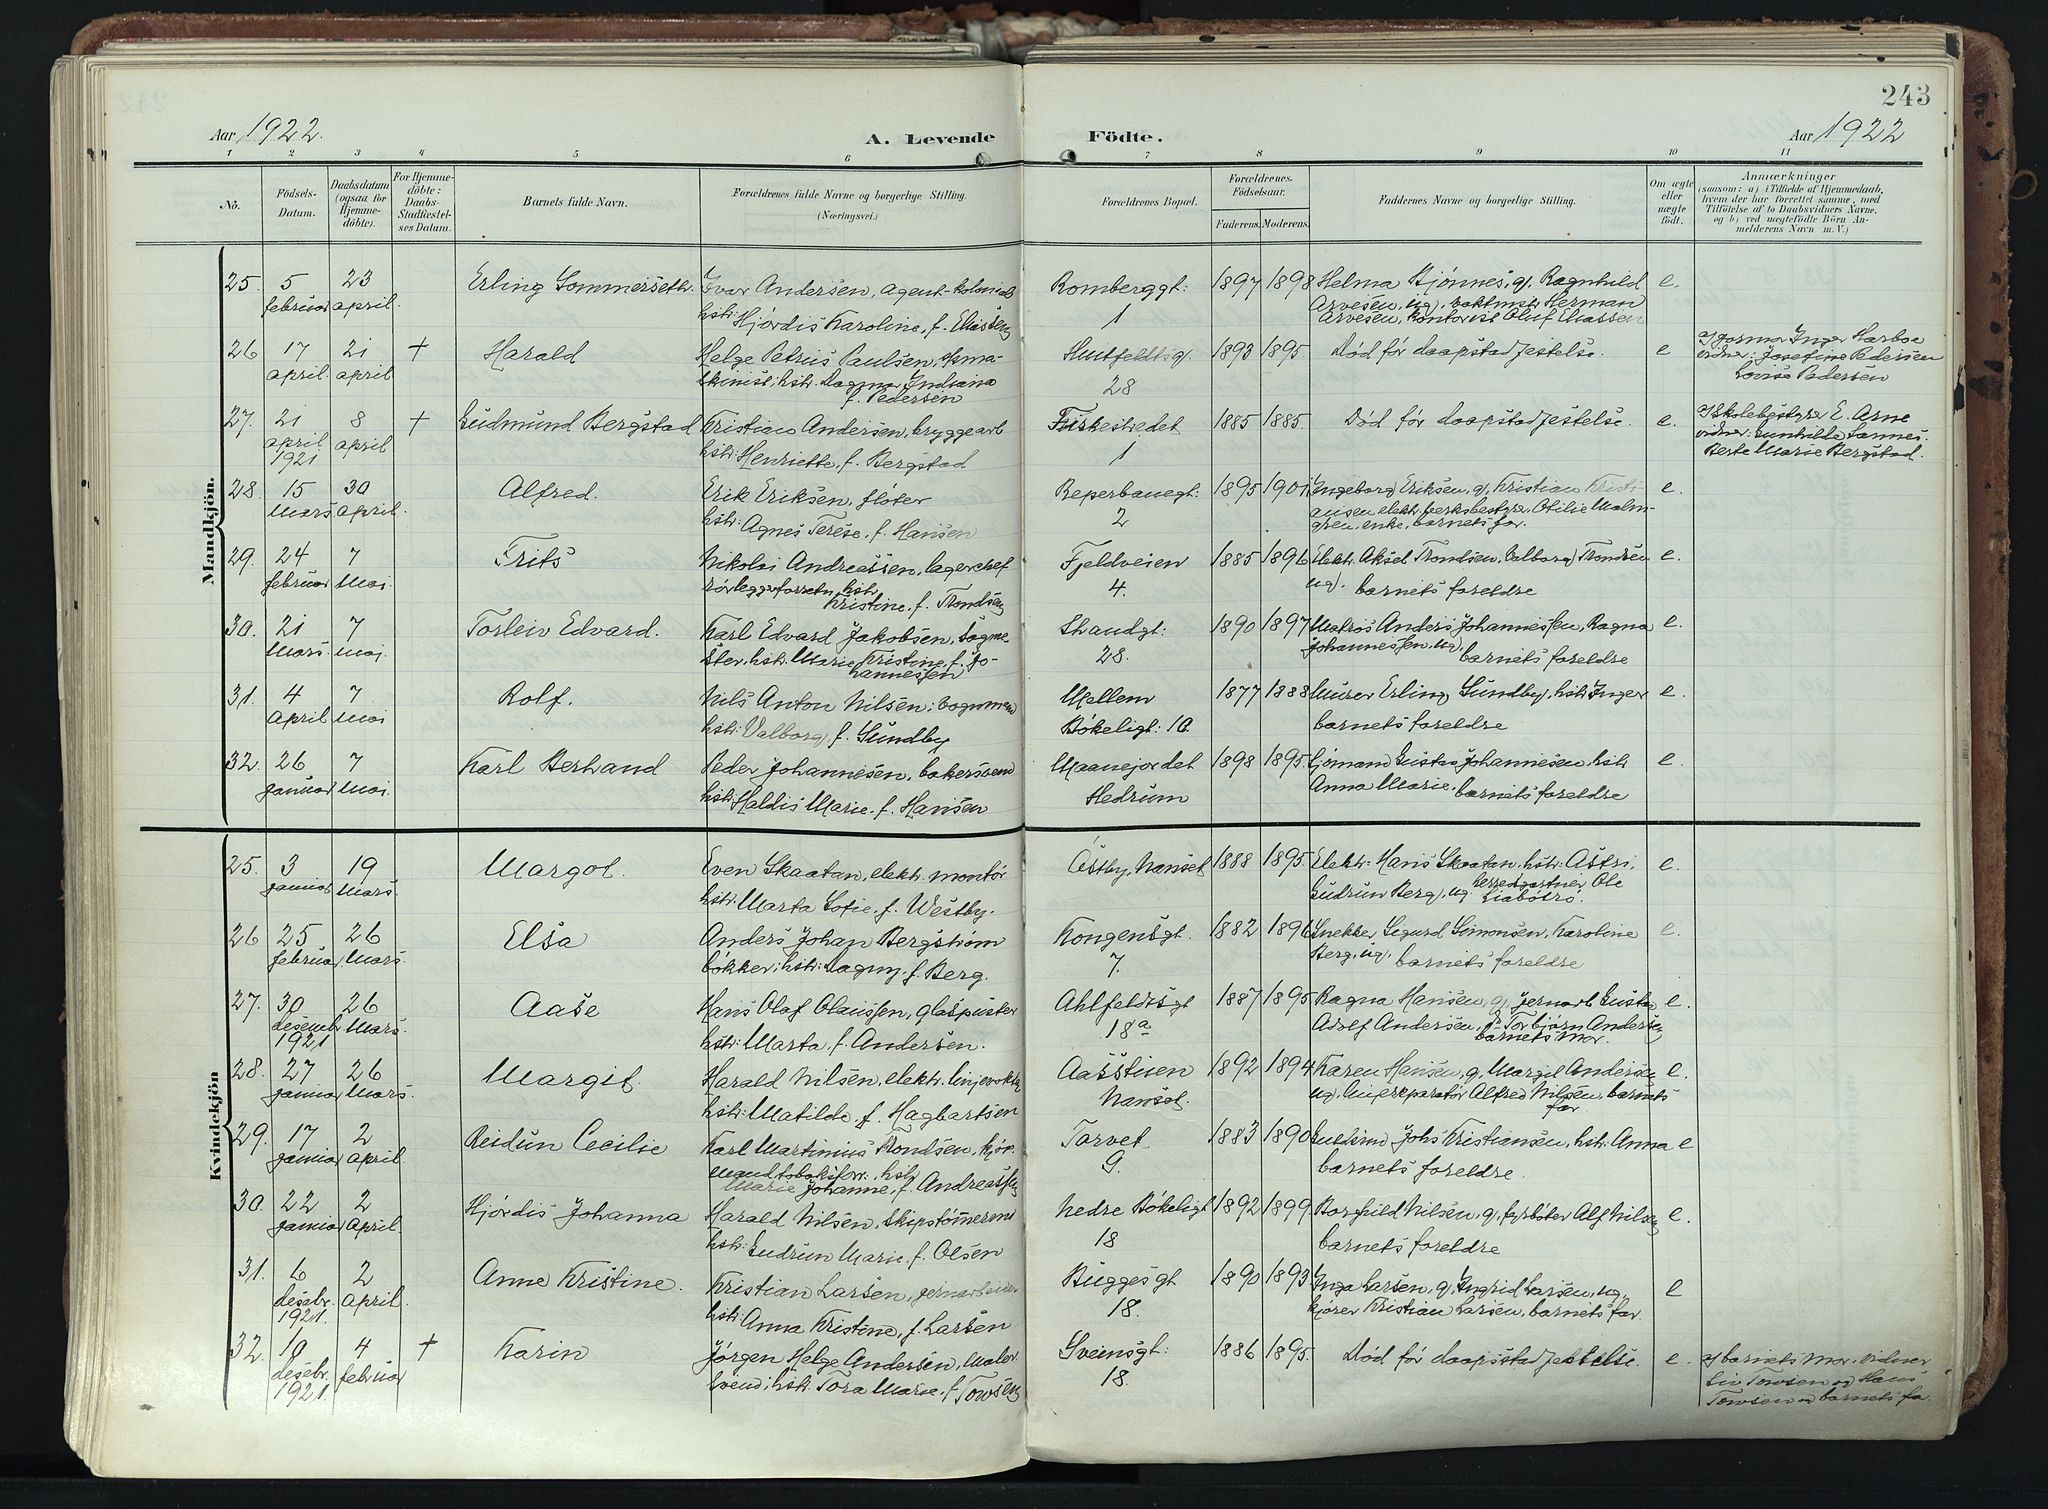 243
Aar 1922.
A. Levende Födte.
Aar 1922
1 2 3 4 5 6 7 8 9 10 11
No.
Födsels-Datum.
Daabsdatum (ogsaa for Hjemme-döbte).
For Hjemme-döbte: Daabs-Stadfæstel-ses Datum.
Barnets fulde Navn.
Forældrenes fulde Navne og borgerlige Stilling.
(Næringsvei.)
Forældrenes Bopæl.
Forældrenes Födselsaar.
Faderens. Moderens.
Faddernes Navne og borgerlige Stilling.
Om ægte eller uægte födt.
Anmærkninger
(saasom: a) i Tilfælde af Hjemmedaab,
hvem der har forrettet samme, med
Tilföielse af to Daabsvidners Navne,
og b) ved uægtefödte Börn An-
melderens Navn m. V.)
Mandkjön.
25. 5 februar 23 april. Erling Sommerseth. Ivar Andersen, agent-kolonial
hstr: Hjørdis Karoline, f. Eliassen
Romberggt: 1 1897 1898 Helma Bjønnes, g, Ragnhild
Arvesen, ug, vaktmstr Herman
Arvesen, kontorist Oluf Massen e.
26 17 april. 21 april + Harald Helge Petrus Paulsen,
skinist, hstr. Dagmar Indiana
f. Pedersen
Huitfeldtsg. 28 1893 1895. Død før daapstadfestelse. e
Jordmor Inger Harboe
vidner: Josefine Pedersen
Lovise Pedersen
27. 21 april 1921 8 april + Gudmund Bergstad Kristian Andersen, bryggearb
hstr: Henriette, f. Bergstad
Fiskestredet 1 1885 1885. Død før daapstadfestelse. e.
Skolebestyr E. Arne
vidner: Gunhilde
Berte Marie Bergstad.
28. 15 Mars 30 april. Alfred. Erik Eriksen, fløter
hstr: Agnes Terese, f. Hansen
Reperbanegt: 2 1895 1901 Ingeborg Eriksen, g, Kristian Kristi-
ansen elektr. verksbestyr, Otilie Malm-
gren, enke, barnets far. e.
29. 24 februar 7 Mai. Frits Nikolai Andreassen, lagerchef
rørleggerforretn, hstr
Kristine, f. Trondsen
Fjeldveien 4. 1885 1896 Elektr. Aksel Trondsen, Valborg Trondsen
ug, barnets foreldre e.
30. 21 Mars 7 mai. Torleiv Edvard. Karl Edvard Jakobsen, sagme-
ster, hstr. Marie Kristine, f. Jo-
hannessen
Strandgt: 28. 1890 1897 Matros Anders Johannessen, Ragna
Johannessen, ug, barnets foreldre e.
31. 4 april 7 Mai Rolf. Nils Anton Nilsen, vognmann
hstr: Valborg, f. Sundby
Mellem Bøkeligt: 10. 1877 1888 Murer Erling Sundby, hstr Inger
barnets foreldre e.
32. 26 januar 7 Mai. Karl Berhand Peder Johannesen, bakersvend
hstr. Haldis Marie, f. Hansen
Maanejordet Hedrum 1898 1895. Sjømand Gustav Johannesen hstr
Anna Marie, barnets foreldre e.
Kvindekjön
25. 3 januar 19 Mars. Margot. Even Skaatan, elektr. montør
hstr. Marta Sofie, f. Westby.
Østby, Nanset 1888 1895. Elektr. Hans Skaatan, hstr: Astri,
Gudrun Berg, ug, herredgartner Ole
Liabøtrø. e.
26 25 februar 26 Mars. Elsa Anders Johan Bergstrøm
bøkker, hstr: Dagny, f. Berg.
Kongensgt. 7. 1882 1896 Snekker Sigurd Simonsen, Karoline
Berg, ug, barnets foreldre e.
27. 30 desembr 1921 26 Mars. Aase Hans Olaf Olaussen, glaspuster
hstr. Marta, f. Andersen.
Ahlfeldtsgt 18a 1887 1895. Ragna Hansen, g, jernarb Gustav
Adolf Andersen, Torbjørn Andersen
barnets Mor. e.
28. 27 januar 26 Mars. Margit. Harald Nilsen, elektr. linjevokter
hstr: Matilde, f. Hagbartsen
Aasstuen Nanset. 1892 1894 Karen Hansen, g, Margit Andersen
ug, linjereparatør Alfred Nilsen, barnets
far e.
29. 17 januar 2 April. Reidun Cecilie Karl Martinius Trondsen, kjøp-
mand tobaksforr., hstr
Marie Johanne, f. Andreassen
Torvet 9. 1883 1890 Gulsmd Johs Kristiansen, hstr. Anna
barnets foreldre. e
30. 22 januar 2 April. Hjørdis Johanna Harald Nilsen, skipstømerm
hstr: Gudrun Marie, f. Olsen
Nedre Bøkeligt 18 1892 1899 Borghild Nilsen, g, fyrbøter Alf Nilsen
barnets foreldre e.
31. 6 desebr. 1921. 2 April. Anne Kristine. Kristian Larsen, jernarbeider
hstr: Anna Kristine, f. Larsen
Büggesgt 18. 1890 1893 Inga Larsen, g, Ingrid Larsen, ug,
kjører Kristian Larsen, barnets far. e
32. 10 desebr. 1921. 4 februar + Karin Jørgen Helge Andersen, Maler
svend, hstr. Tora Marie, f Towsen
Sveinsgt: 18. 1886 1895. Død før daapsstadfestelse. e.
barnets Mor, vidner
Liv Towsen og Hans
Towsen og barnets fa.